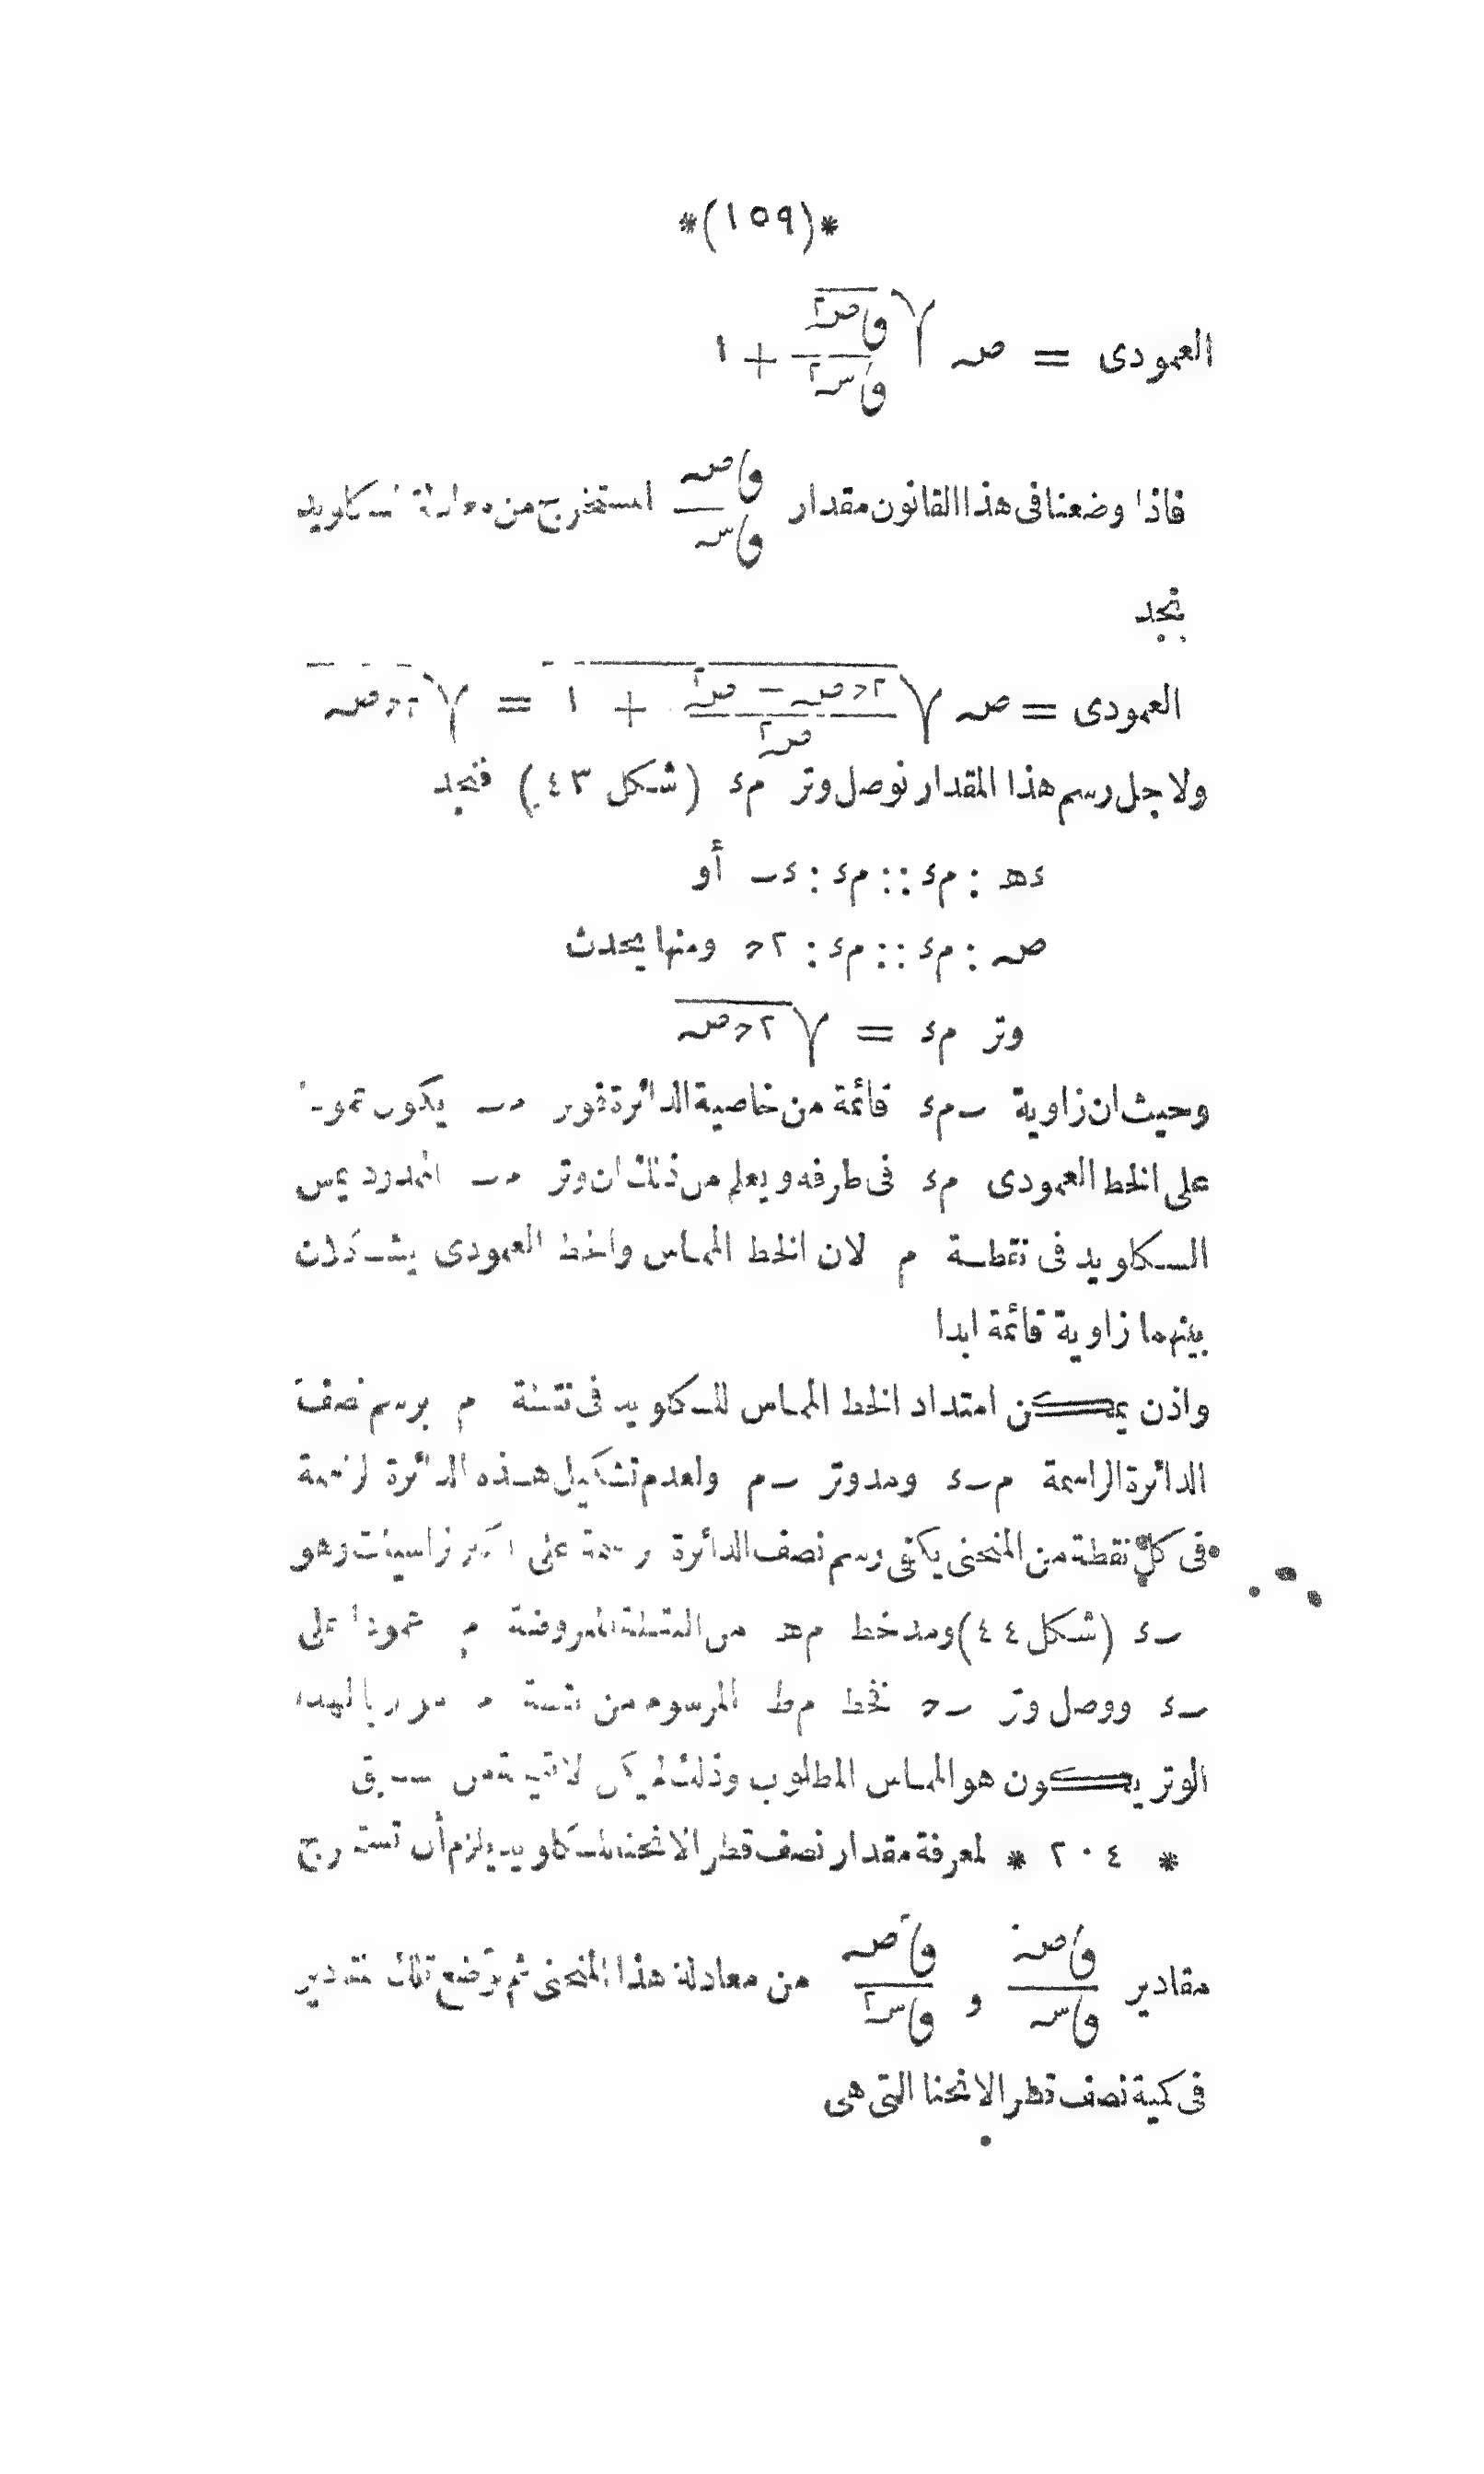 *(١٥٩)*
العمودى = صہ √(ࢢصہ٢ / ࢢسہ٢) + ١
فاذا وضعنا فى هذا القانون مقدار ࢢصہ / ࢢسہ المستخرج من معادلة السكاويد
نجد
العمودى = صہ √((٢حصہ − صہ٢) / صہ٢ + ١) = √(٢حصہ)
ولاجل رسم هذا المقدار نوصل وتر مء (شكل ٤٣) فنجد
ءهـ : مء :: مء : ءب أو
صہ : مء :: مء : ٢ح ومنها يحدث
وتر مء = √(٢حصہ)
وحيث ان زاوية بمء قائمة من خاصية الدائرة فوتر مب يكون عمودا
على الخط العمودى مء فى طرفه ويعلم من ذلك ان وتر مب الممدود يمس
السكاويد فى نقطة م لان الخط المماس والخط العمودى يتشكلان
بينهما زاوية قائمة ابدا
واذن يمكن امتداد الخط المماس للسكاويد فى نقطة م برسم نصف
الدائرة الراسمة مبء ومد وتر بم ولعدم تشكيل هذه الدائرة الراسمة
فى كل نقطة من المنحنى يكفى رسم نصف الدائرة الراسمة على اكبر راسيات وهو
بء (شكل ٤٤) ومد خط مهـ من النقطة المفروضة م عمودا على
بء ووصل وتر بح فخط مط المرسوم من نقطة م موازيا لهذا
الوتر يكون هو المماس المطلوب وذلك سبق
* ٢٠٤ * لمعرفة مقدار نصف قطر الانحنا للسكاويد يلزم أن تستخرج
مقادير ࢢصہ / ࢢسہ و ࢢ٢صہ / ࢢسہ٢ من معادلة هذا المنحنى ثم توضع تلك المقادير
فى كمية نصف قطر الانحنا التى هى